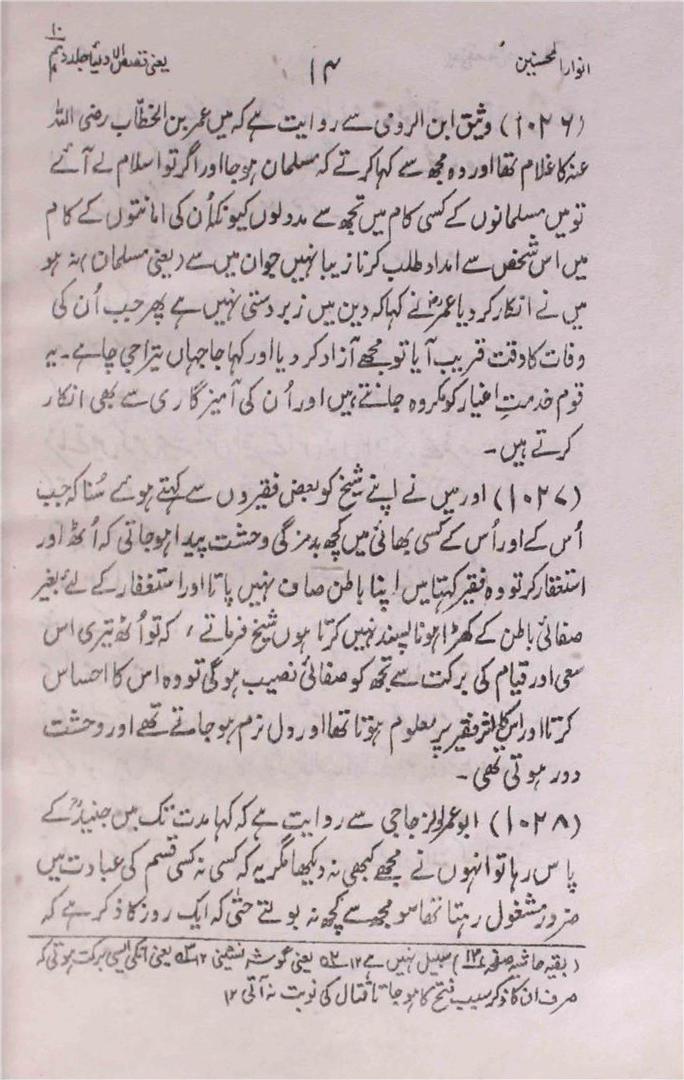 انوار المحسنین
۱۴
یعنی قصص الاولیا جلد دہم
۱۰
(۱۰۲۶) وثیق ابن الرومی سے روایت ہے کہ میں عمر بن الخطاب رضی اللہ
عنہ کا غلام تھا اور وہ مجھ سے کہا کرتے کہ مسلمان ہو جا اور اگر تو اسلام لے آئے
تو میں مسلمانوں کے کسی کام میں تجھ سے مدد لوں کیونکہ اُن کی امانتوں کے کام
میں اس شخص سے امداد طلب کرنا زیبا نہیں جو ان میں سے (یعنی مسلمان) نہ ہو
میں نے انکار کر دیا عمرؓ نے کہا کہ دین میں زبردستی نہیں ہے پھر جب اُن کی
وفات کا وقت قریب آیا تو مجھے آزاد کر دیا اور کہا جا جہاں تیرا جی چاہے۔ یہ
قوم خدمتِ اغیار کو مکروہ جانتے ہیں اور اُن کی آمیزگاری سے بھی انکار
کرتے ہیں۔
(۱۰۲۷) اور میں نے اپنے شیخ کو بعض فقیروں سے کہتے ہوئے سُنا کہ جب
اُس کے اور اُس کے کسی بھائی میں کچھ بدمزگی وحشت پیدا ہو جاتی کہ اُٹھ اور
استغفار کر تو وہ فقیر کہتا میں اپنا باطن صاف نہیں پاتا اور استغفار کے لئے بغیر
صفائی باطن کے کھڑا ہونا پسند نہیں کرتا ہوں شیخ فرماتے، کہ تو اُٹھ تیری اس
سعی اور قیام کی برکت سے تجھ کو صفائی نصیب ہوگی تو وہ اس کا احساس
کرتا اور اس کا اثر فقیر پر معلوم ہوتا تھا اور دل نرم ہو جاتے تھے اور وحشت
دور ہوتی تھی۔
(۱۰۲۸) ابو عمر و زجاجی سے روایت ہے کہ کہا مدت تک میں جنیدؒ کے
پاس رہا تو انہوں نے مجھے کبھی نہ دیکھا مگر یہ کہ کسی نہ کسی قسم کی عبادت میں
ضرور مشغول رہتا تھا سو مجھ سے کچھ نہ بولتے حتیٰ کہ ایک روز کا ذکر ہے کہ
(بقیہ حاشیہ صفحہ ۱۳) سبیل نہیں ہے ۱۲ یعنی گوشہ نشینی ۱۲ یعنی انکی ایسی برکت ہوتی کہ
صرف ان کا ذکر سبب فتح کا ہو جاتا قتال کی نوبت نہ آتی ۱۲